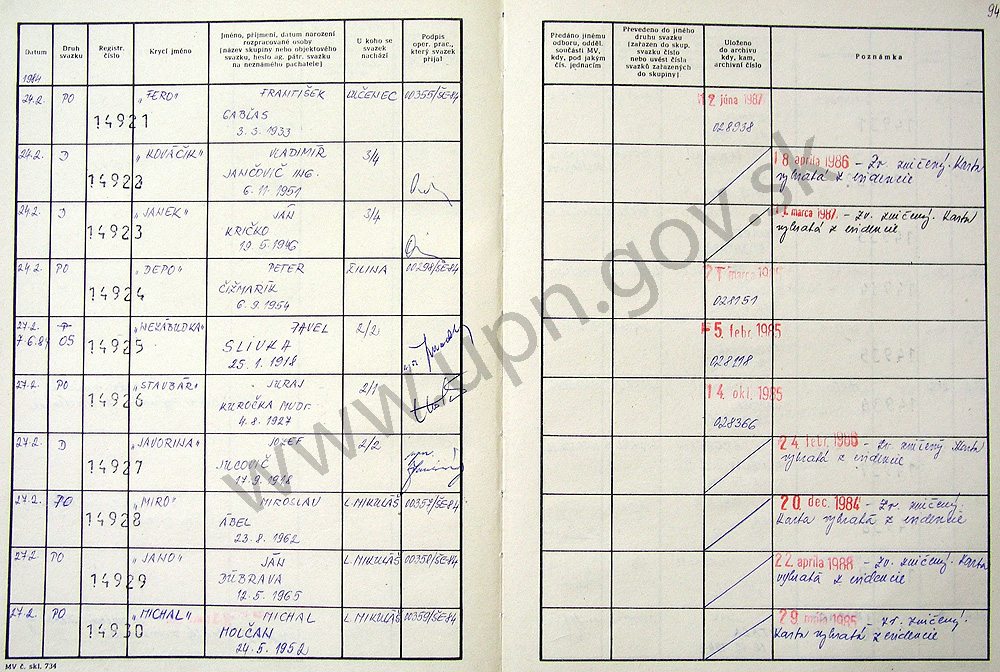 94
Datum
Druh svazku
Registr. číslo
Krycí jméno
Jméno, příjmení, datum narození rozpracované osoby (název skupiny nebo objektového svazku, heslo ag. pátr. svazku na neznámého pachatele)
U koho se svazek nachází
Podpis oper. prac., který svazek přijal
Předáno jinému odboru, odděl. součásti MV, kdy, pod jakým čís. jednacím
Převedeno do jiného druhu svazku (zařazen do skup. svazku číslo nebo uvést čísla svazků zařazených do skupiny)
Uloženo do archivu kdy, kam, archivní číslo
Poznámka
1984
24.2. PO 14921 „FERO" FRANTIŠEK LUČENEC 00355/ŠE-84 12. júna 1987
GABĽAS 028938
3. 3. 1933
24.2. D 14922 „KOVÁČIK" VLADIMÍR 3/4 18. apríla 1986 – Zv. zničený. Karta
JANČOVIČ ING. vybratá z evidencie
6. 11. 1951
24.2. D 14923 „JANEK" JÁN 3/4 marca 1987 – Zv. zničený. Karta
KRIČKO vybratá z evidencie
10. 5. 1946
24.2. PO 14924 „DEPO" PETER ŽILINA 00298/ŠE-84 marca
ČIŽMARIK 028151
6. 9. 1954
27.2. 14925 PAVEL 2/2 5. febr. 1985
7.6.84 OS SLIVKA 028118
25. 1. 1918
27.2. PO 14926 „STAVBÁR" JURAJ 2/1 14. okt. 1985
KUROČKA MUDr. 028366
4. 8. 1927
27.2. D 14927 „JAVORINA" JOZEF 2/2 24. febr. 1988 – Zv. zničený Karta
vybratá z evidencie
17. 9. 1918
27.2. PO 14928 „MIRO" MIROSLAV L. MIKULÁŠ 00357/ŠE-84 20. dec. 1984 – Zv. zničený.
ÁBEL Karta vybratá z evidencie
23. 8. 1962
27.2. PO 14929 „JANO" JÁN L. MIKULÁŠ 00358/ŠE-84 22. apríla 1988 – Zv. zničený. Karta
DÚBRAVA vybratá z evidencie
12. 5. 1965
27.2. PO 14930 „MICHAL" MICHAL L. MIKULÁŠ 00359/ŠE-84 29. 1985 – Zv. zničený.
MOLČAN Karta vybratá z evidencie
24. 5. 1952
MV č. skl. 734
www.upn.gov.sk